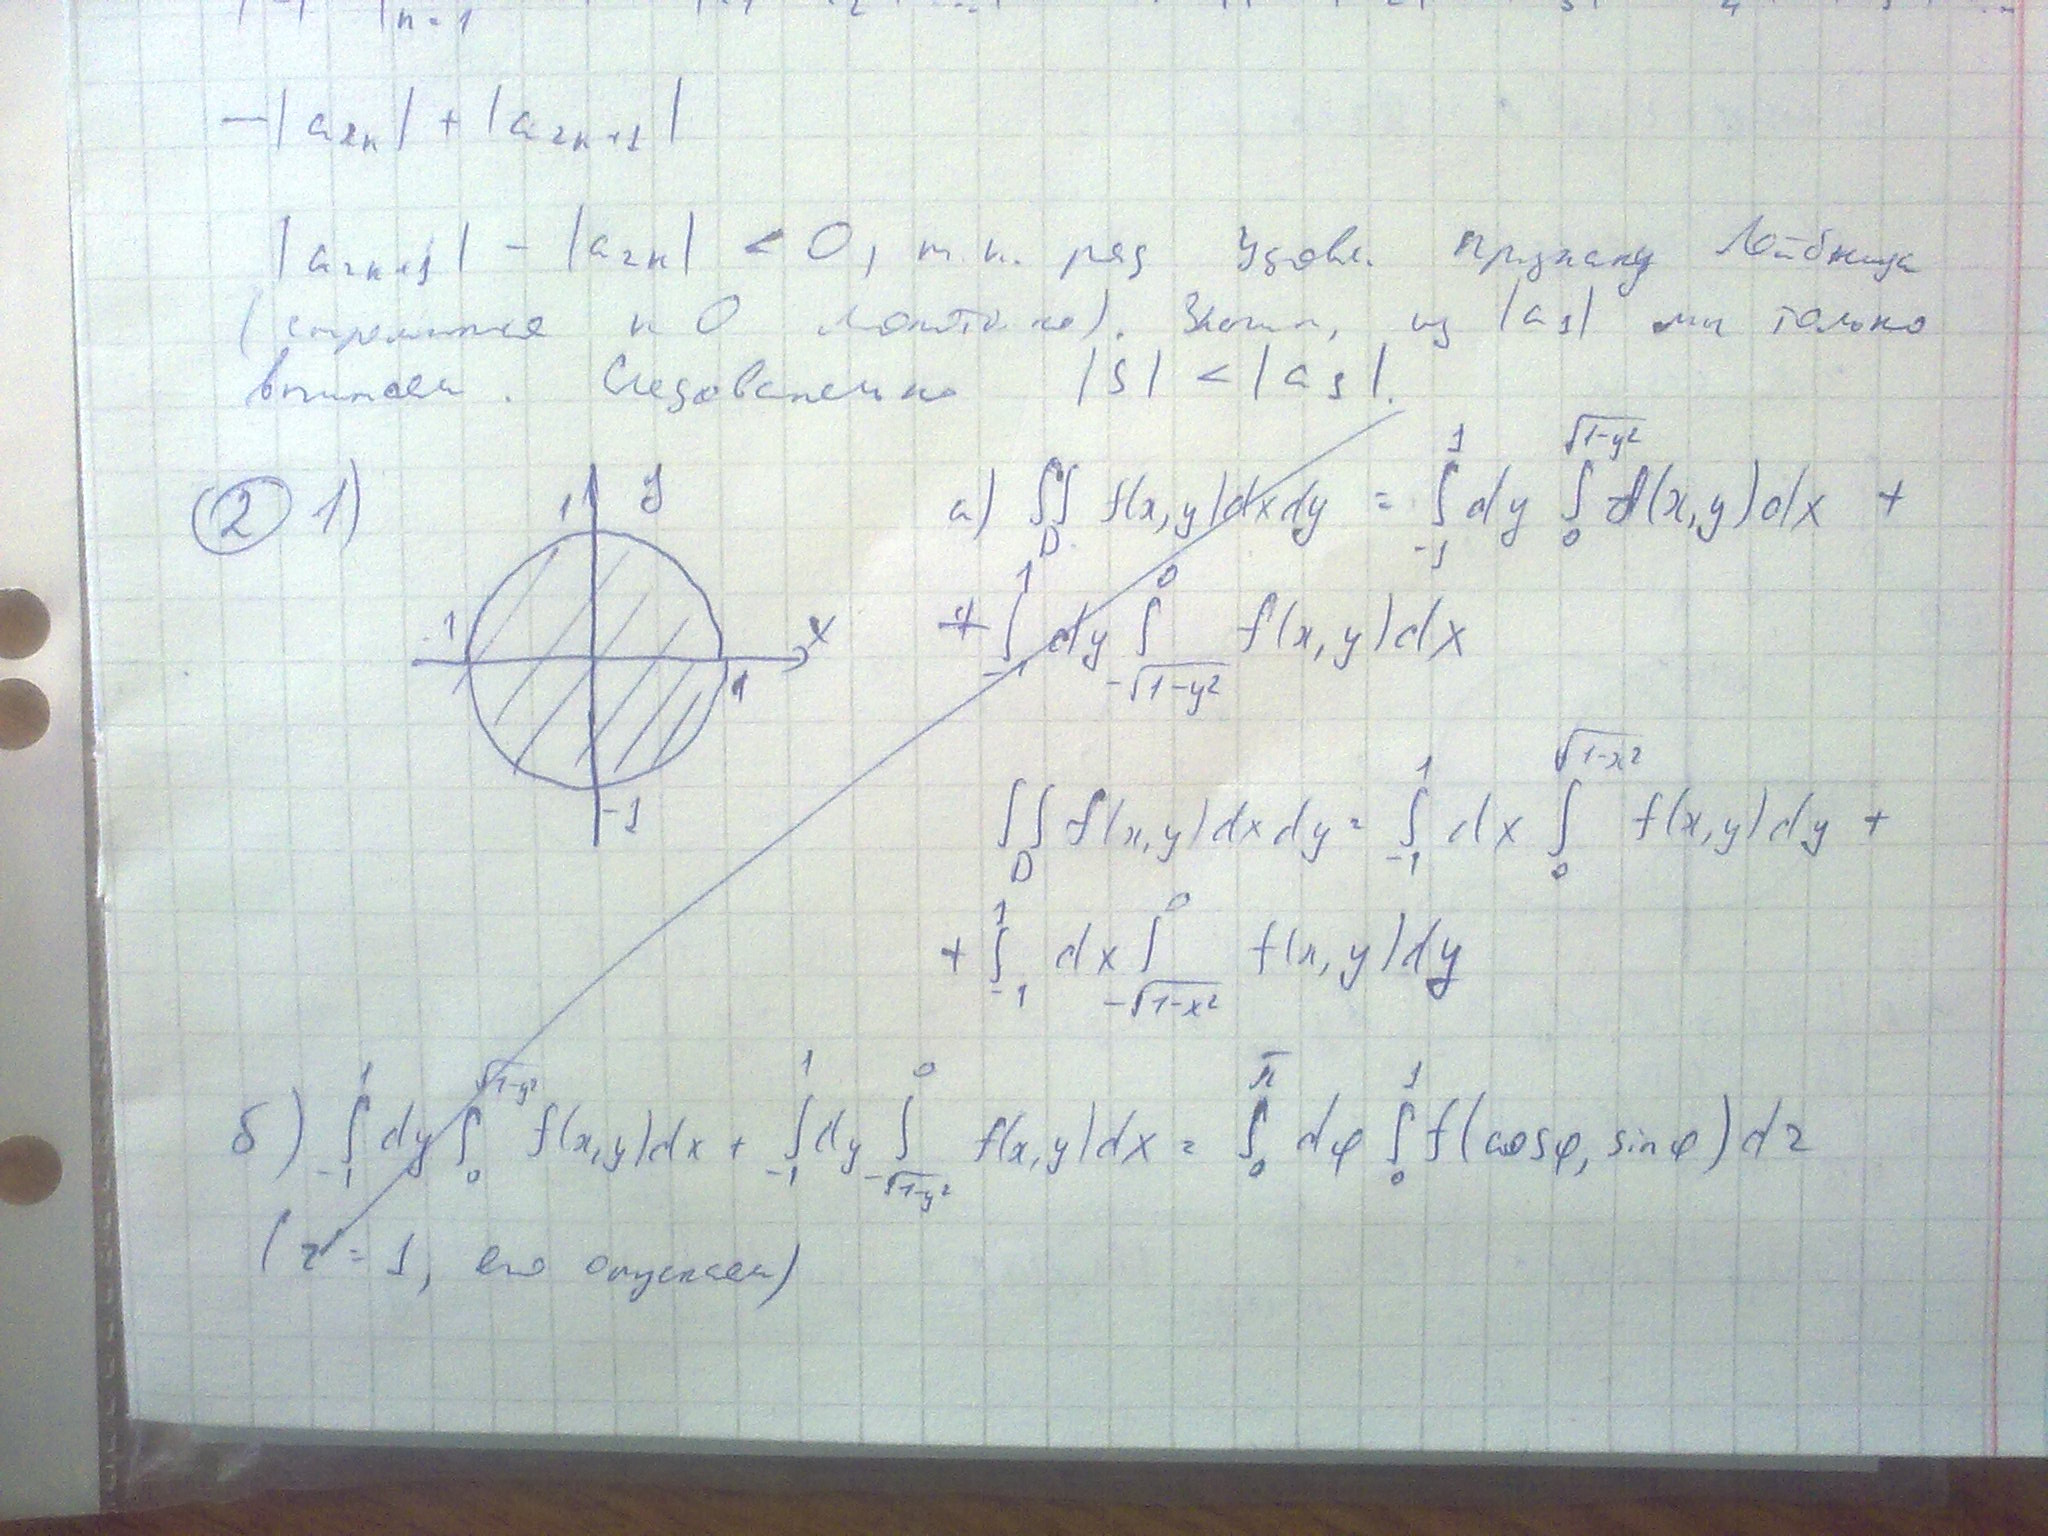 n=1
-|a₂ₙ| + |a₂ₙ₊₁|
|a₂ₙ₊₁| - |a₂ₙ| < 0, т.к. ряд удовл. признаку Лейбница
(стремится к 0 монотонно). Значит, из |a₁| мы только
вычитаем. Следовательно |S| < |a₁|.
② 1) 1 y -1 x 1 -1
а) ∬_D f(x,y)dxdy = ∫_{-1}^{1} dy ∫_0^{√(1-y²)} f(x,y)dx +
+ ∫_{-1}^{1} dy ∫_{-√(1-y²)}^{0} f(x,y)dx
∬_D f(x,y)dxdy = ∫_{-1}^{1} dx ∫_0^{√(1-x²)} f(x,y)dy +
+ ∫_{-1}^{1} dx ∫_{-√(1-x²)}^{0} f(x,y)dy
б) ∫_{-1}^{1} dy ∫_0^{√(1-y²)} f(x,y)dx + ∫_{-1}^{1} dy ∫_{-√(1-y²)}^{0} f(x,y)dx = ∫_0^{π} dφ ∫_0^{1} f(cosφ, sinφ)dr
(r = 1, его опускаем)